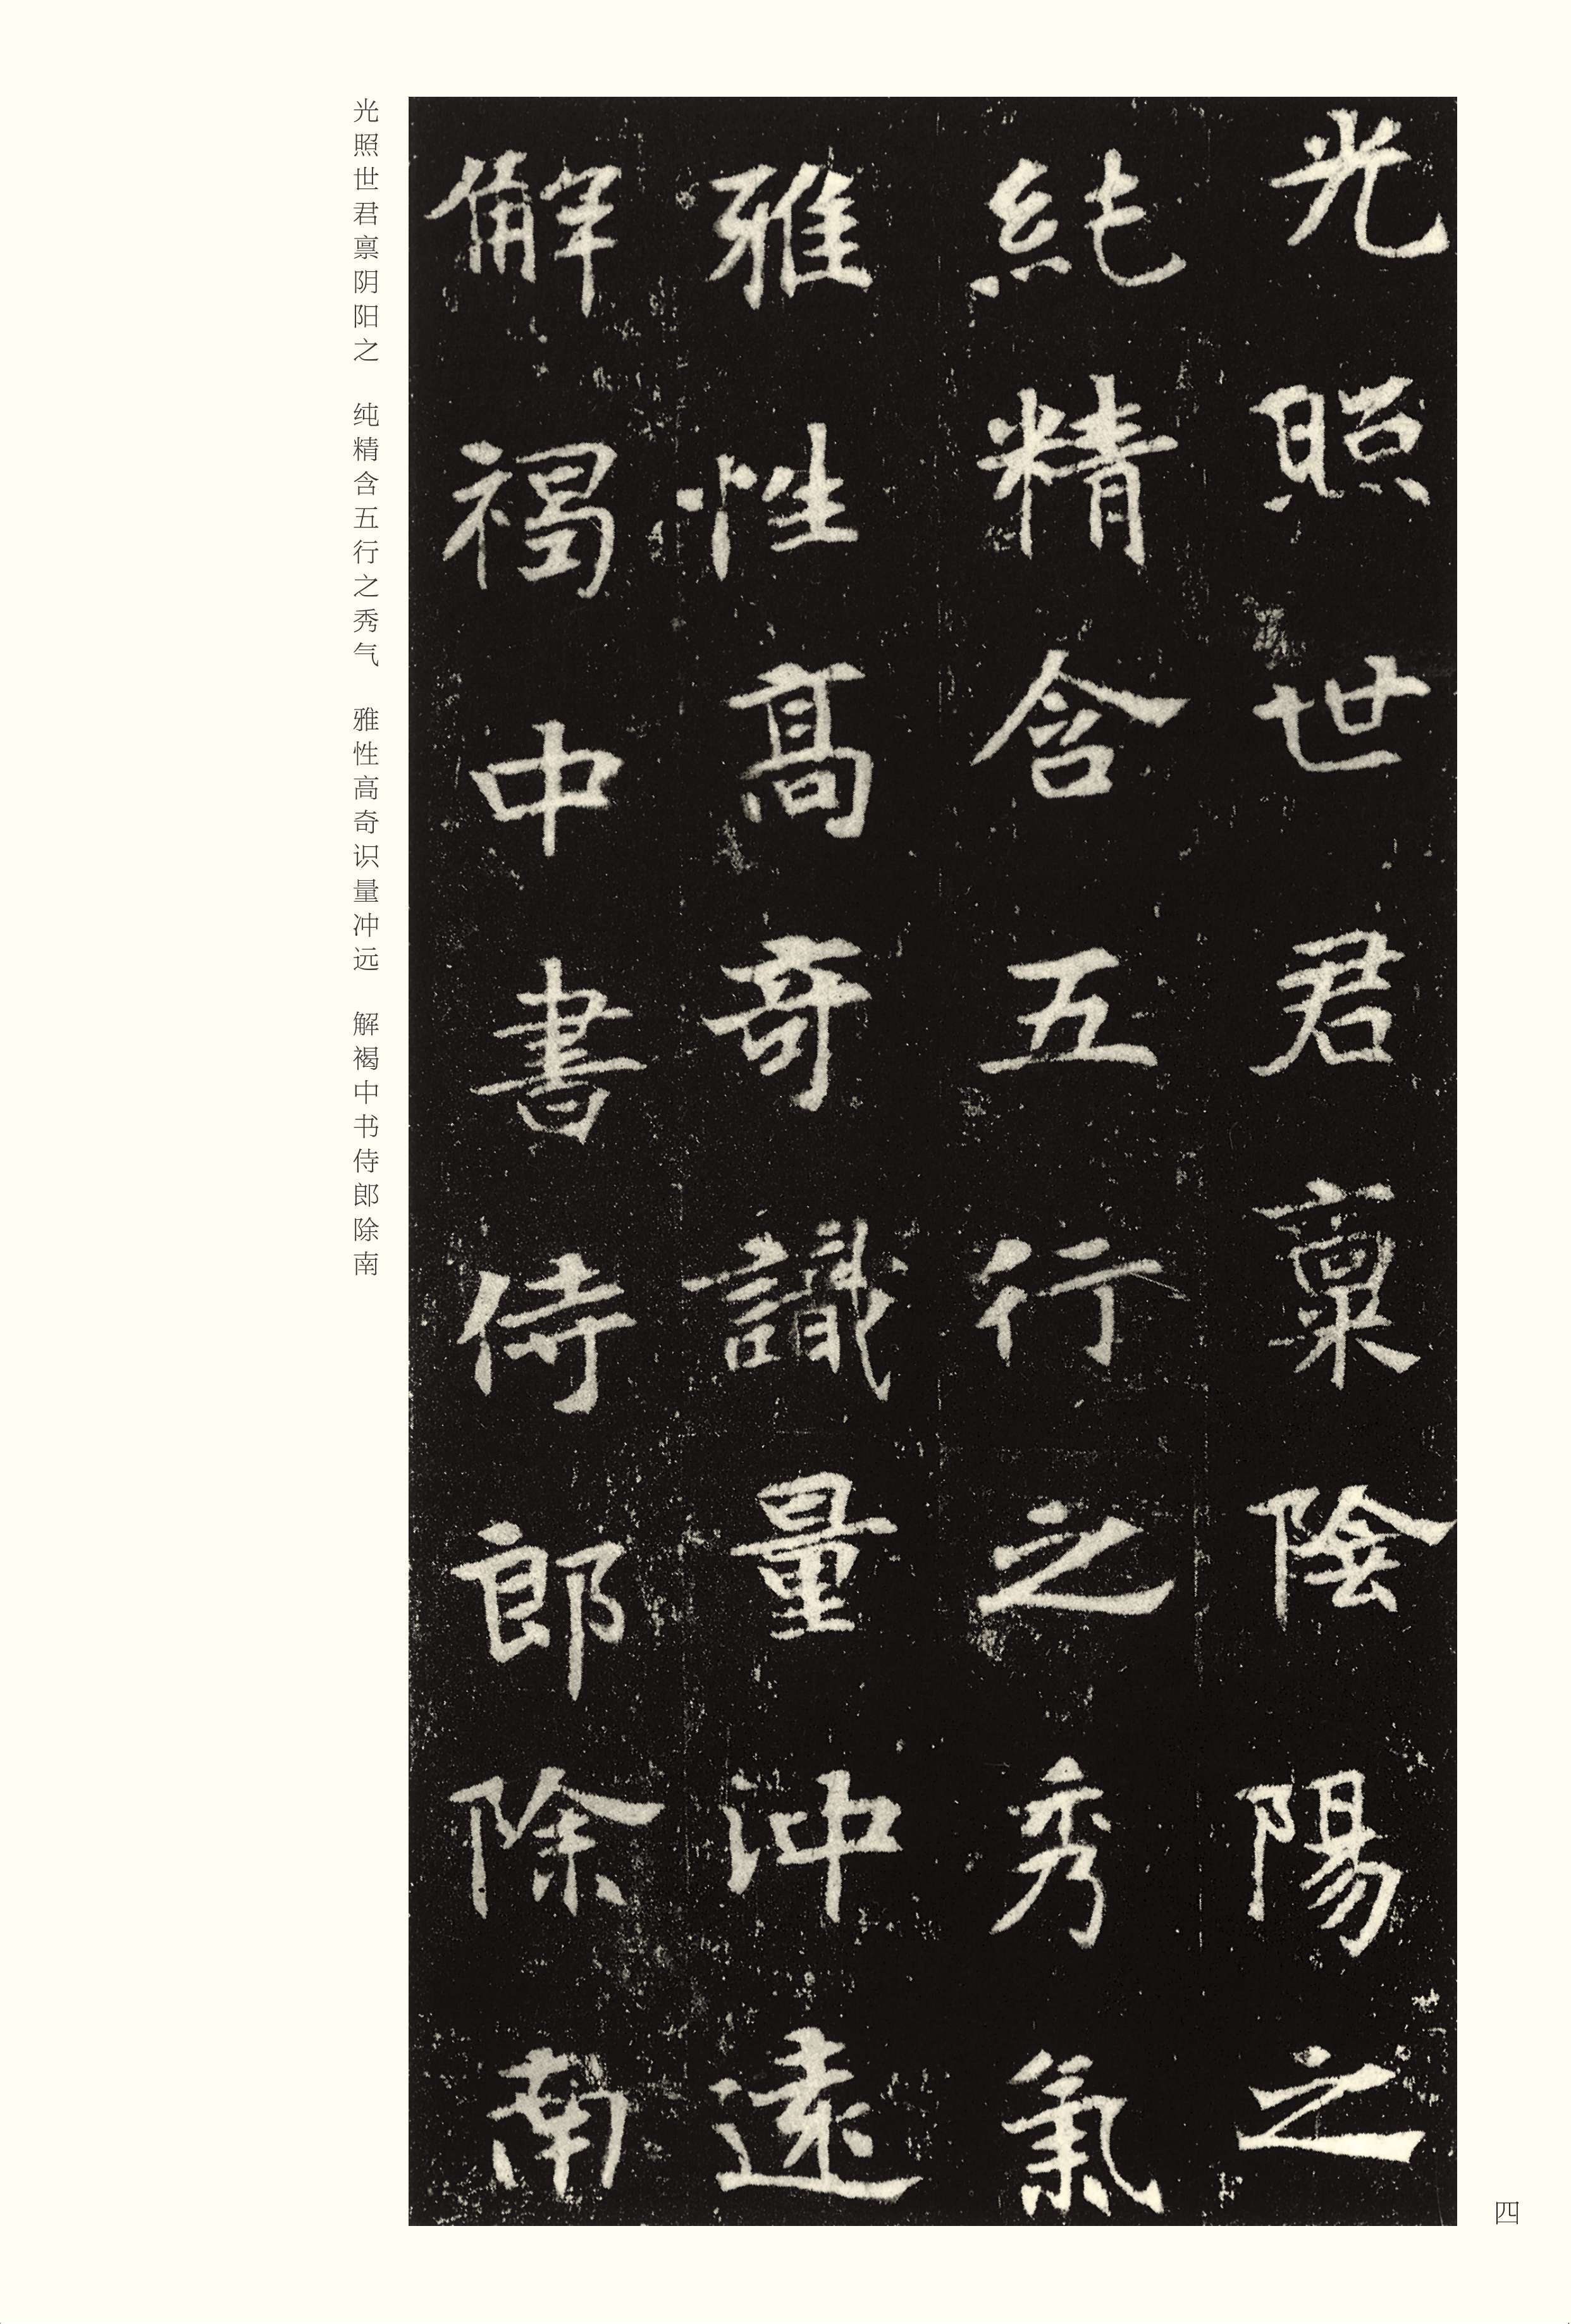 光照世君禀陰陽之
純精含五行之秀氣
雅性高奇識量沖遠
解褐中書侍郎除南
光照世君禀阴阳之　纯精含五行之秀气　雅性高奇识量冲远　解褐中书侍郎除南
四